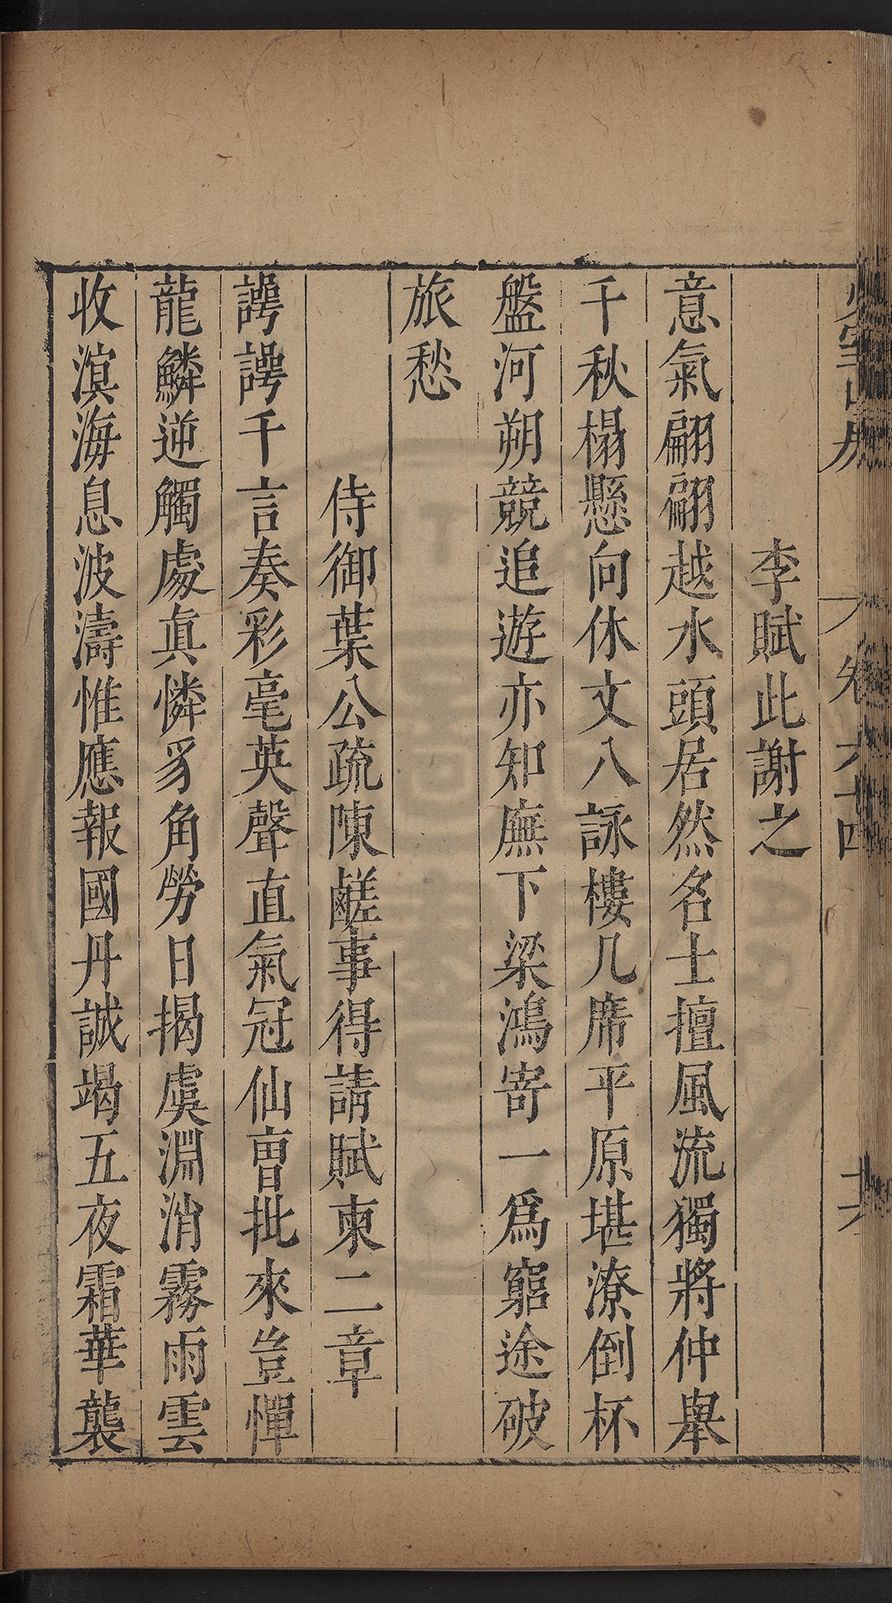 李賦此謝之
意氣翩翩越水頭居然名士擅風流獨將仲舉
千秋榻懸向休文八詠樓几席平原堪潦倒杯
盤河朔競追遊亦知廡下梁鴻寄一爲窮途破
旅愁
侍御葉公疏陳鹺事得請賦柬二章
諤諤千言奏彩毫英聲直氣冠仙曹批來豈憚
龍鱗逆觸處真憐豸角勞日揭虞淵消霧雨雲
收溟海息波濤惟應報國丹誠竭五夜霜華襲